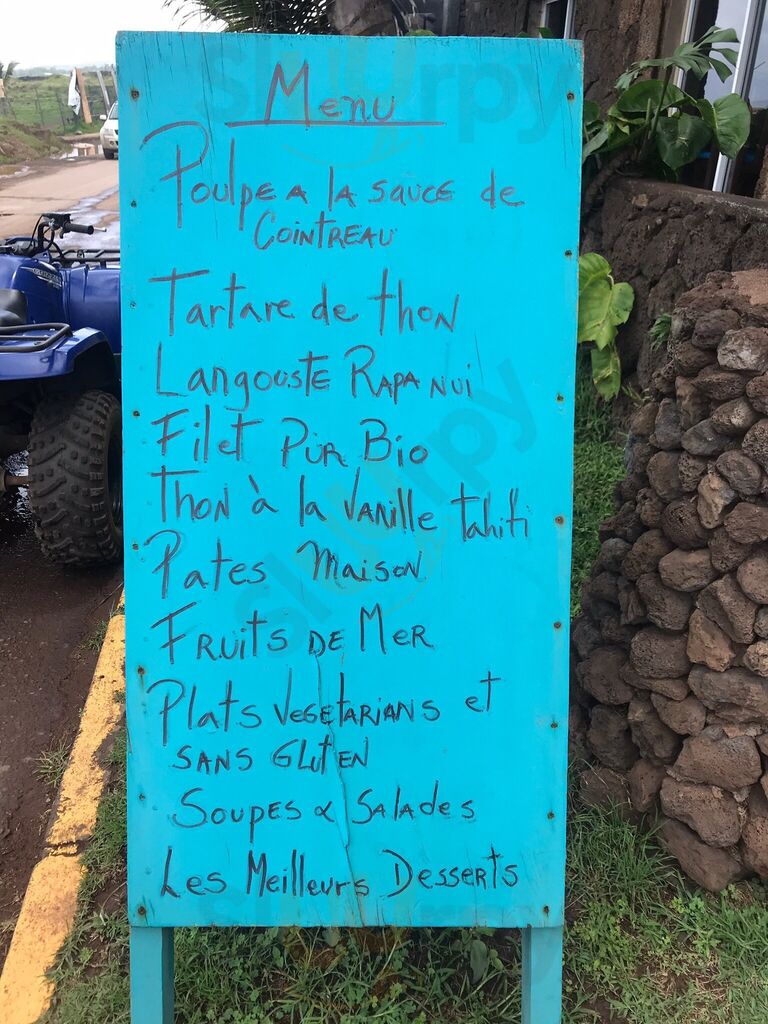 Menu
Poulpe a la sauce de
Cointreau
Tartare de thon
Langouste Rapa nui
Filet Pur Bio
Thon à la vanille tahiti
Pates maison
Fruits de Mer
Plats vegetarians et
sans gluten
Soupes & Salades
Les Meilleurs Desserts
slurrpy
slurrpy
slurrpy